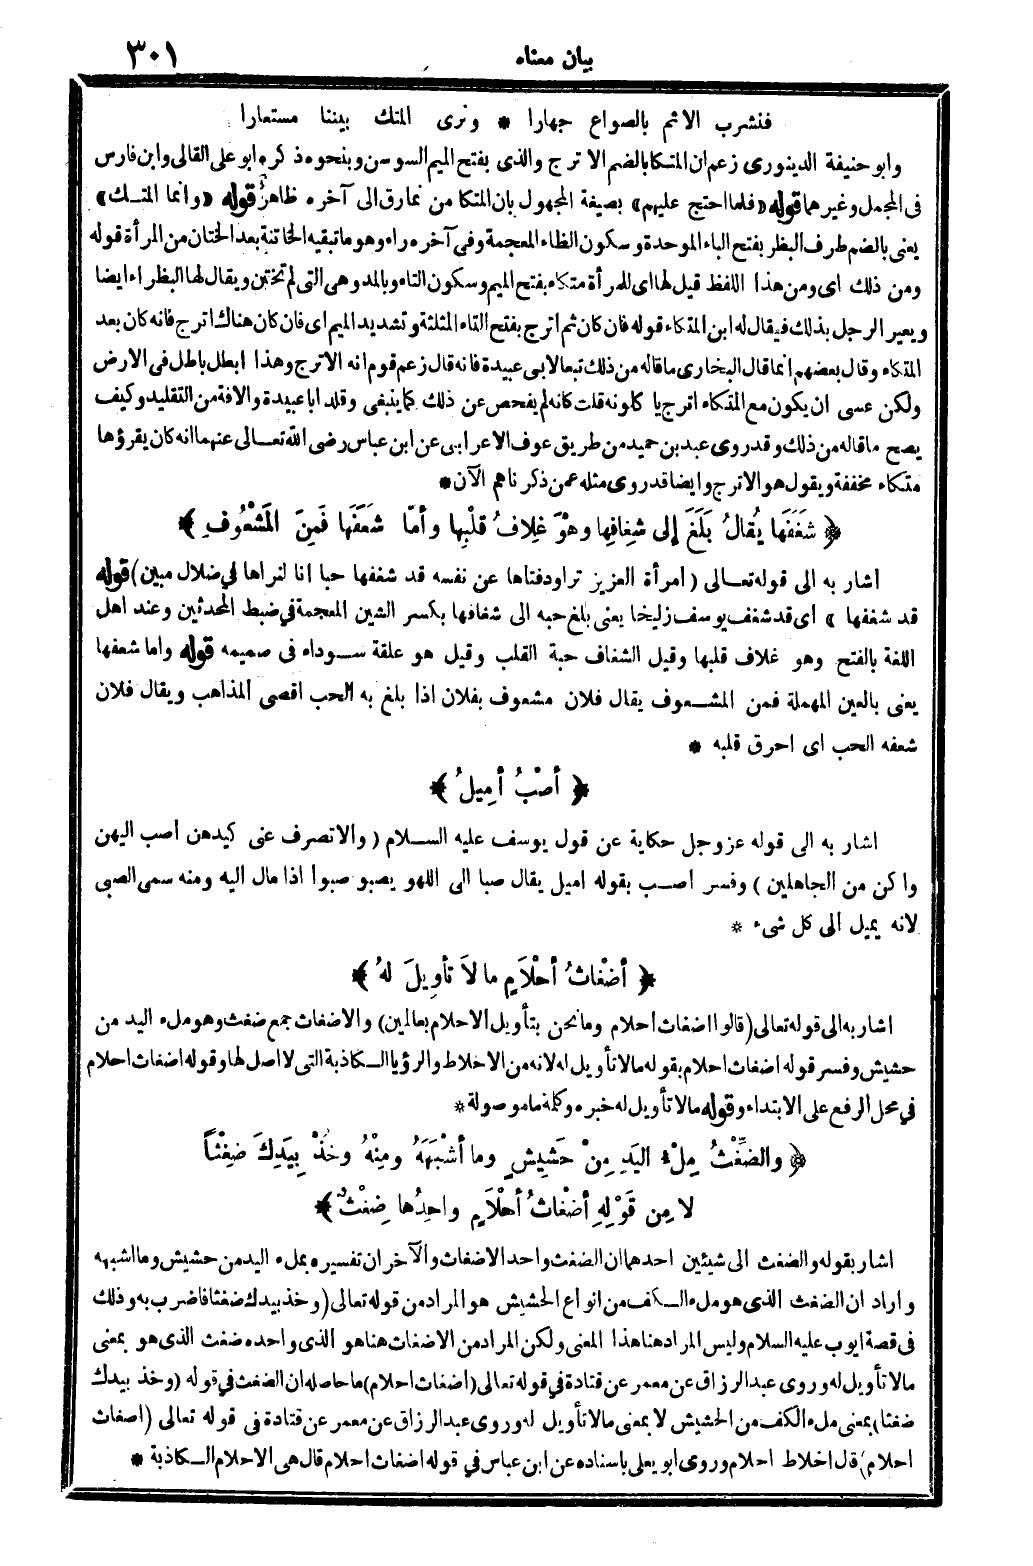 بيان معناه ٣٠١
فنشرب الاثم بالصواع جهارا * ونرى المتك بيننا مستعارا
وابو حنيفة الدينورى زعم ان المتكا بالضم الاترج والذى بفتح الميم السوسن وبنحوه ذكره ابو على القالى وابن فارس
فى المجمل وغيرهما قوله «فلما احتج عليهم» بصيغة المجهول بان المتكا من نمارق الى آخره ظاهر قوله «وانما المتك»
يعنى بالضم طرف البظر بفتح الباء الموحدة وسكون الظاء المعجمة وفى آخره راء وهو ما تبقيه الخاتنة بعد الختان من المرأة قوله
ومن ذلك اى ومن هذا اللفظ قيل لها اى للمرأة متكاء بفتح الميم وسكون التاء وبالمد وهى التى لم تختن ويقال لها البظراء ايضا
ويعير الرجل بذلك فيقال له ابن المتكاء قوله فان كان ثم اترج بفتح الثاء المثلثة وتشديد الميم اى فان كان هناك اترج فانه كان بعد
المتكاء وقال بعضهم انما قال البخارى ما قاله من ذلك تبعا لابى عبيدة فانه قال زعم قوم انه الاترج وهذا ابطل باطل فى الارض
ولكن عسى ان يكون مع المتكاء اترج يا كلونه قلت كانه لم يفحص عن ذلك كما ينبغى وقلد ابا عبيدة والافة من التقليد وكيف
يصح ما قاله من ذلك وقد روى عبد بن حميد من طريق عوف الاعرابى عن ابن عباس رضى الله تعالى عنهما انه كان يقرؤها
متكاء مخففة ويقول هو الاترج وايضا قد روى مثله عمن ذكرناهم الآن *
﴿ شَغَفَها يُقالُ بَلَغَ إلى شِغافِها وهْوَ غِلافُ قلْبِها وأمَّا شَعَفَها فَمِنَ المَشْعُوفِ ﴾
اشار به الى قوله تعالى (امرأة العزيز تراود فتاها عن نفسه قد شغفها حبا انا لنراها فى ضلال مبين) قوله
قد شغفها » اى قد شغف يوسف زليخا يعنى بلغ حبه الى شغافها بكسر الشين المعجمة فى ضبط المحدثين وعند اهل
اللغة بالفتح وهو غلاف قلبها وقيل الشغاف حبة القلب وقيل هو علقة سوداء فى صميمه قوله واما شعفها
يعنى بالعين المهملة فمن المشعوف يقال فلان مشعوف بفلان اذا بلغ به الحب اقصى المذاهب ويقال فلان
شعفه الحب اى احرق قلبه *
﴿ أصْبُ أمِيلُ ﴾
اشار به الى قوله عز وجل حكاية عن قول يوسف عليه السلام (والا تصرف عنى كيدهن أصب اليهن
واكن من الجاهلين) وفسر أصب بقوله اميل يقال صبا الى اللهو يصبو صبوا اذا مال اليه ومنه سمى الصبى
لانه يميل الى كل شىء *
﴿ أضْغاثُ أحْلَامٍ ما لاَ تأوِيلَ لهُ ﴾
اشار به الى قوله تعالى (قالوا اضغاث احلام وما نحن بتأويل الاحلام بعالمين) والاضغاث جمع ضغث وهو ملء اليد من
حشيش وفسر قوله اضغاث احلام بقوله مالا تأويل له لانه من الاخلاط والرؤيا الكاذبة التى لا اصل لها وقوله اضغاث احلام
فى محل الرفع على الابتداء وقوله مالا تأويل له خبره وكلمة ما موصولة *
﴿ والضِّغْثُ مِلْءُ اليَدِ مِنْ حَشِيشٍ وما أشْبَهَهُ ومِنْهُ وخُذْ بِيَدِكَ ضِغْثاً
لا مِن قَوْلِهِ أضْغاثُ أحْلَامٍ واحِدُها ضِغْثٌ ﴾
اشار بقوله والضغث الى شيئين احدهما ان الضغث واحد الاضغاث والآخر ان تفسيره بملء اليد من حشيش وما اشبهه
واراد ان الضغث الذى هو ملء الكف من انواع الحشيش هو المراد من قوله تعالى (وخذ بيدك ضغثا فاضرب به) وذلك
فى قصة ايوب عليه السلام وليس المراد هنا هذا المعنى ولكن المراد من الاضغاث هنا هو الذى واحده ضغث الذى هو بمعنى
مالا تأويل له وروى عبد الرزاق عن معمر عن قتادة فى قوله تعالى (اضغاث احلام) ما حاصله ان الضغث فى قوله (وخذ بيدك
ضغثا) بمعنى ملء الكف من الحشيش لا بمعنى مالا تأويل له وروى عبد الرزاق عن معمر عن قتادة فى قوله تعالى (اضغاث
احلام) قال اخلاط احلام وروى ابو يعلى باسناده عن ابن عباس فى قوله اضغاث احلام قال هى الاحلام الكاذبة *